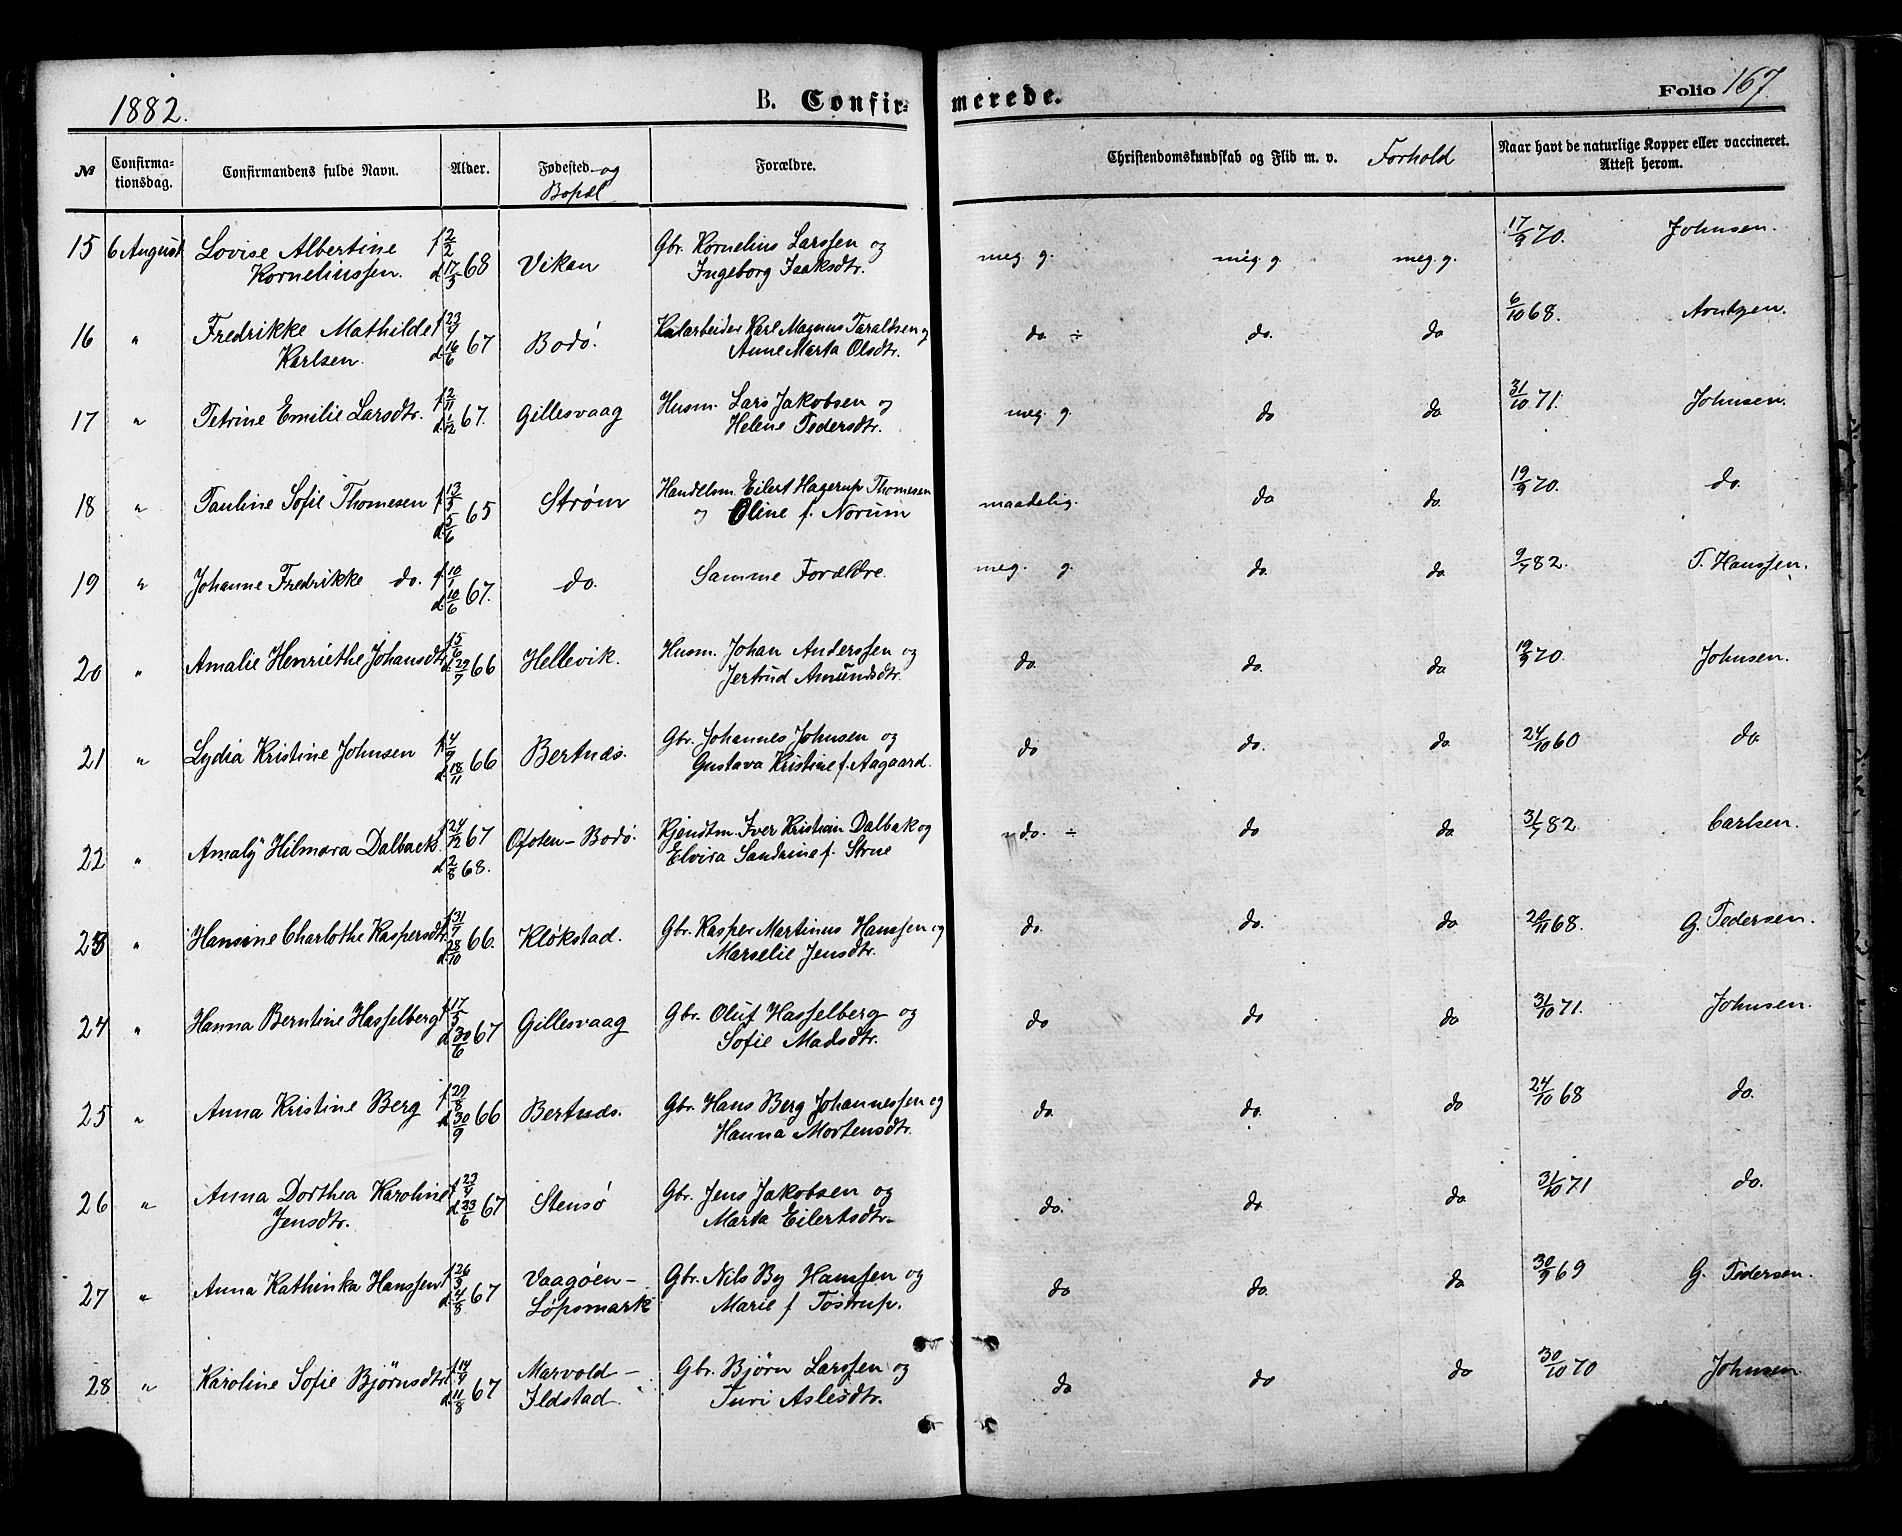 1882. B. Confir- merede. Folio 167
№ Confirmationsdag. Confirmandens fulde Navn. Alder. Fødested og Bopæl Forældre. Christendomskundskab og Flid m. v. Forhold Naar havt de naturlige Kopper eller vaccineret. Attest herom.
15 6 August Lovise Albertine f 2/2 68 Vikan Gbr. Kornelius Larssen og meg. g. meg g meg. g. 17/9 70. Johnsen.
Korneliussen. d 17/5 Ingeborg Isaksdtr.
16 " Fredrikke Mathilde f 23/4 67 Bodö. Karl Magnus Taraldsen og do ÷ do. do 6/10 68. Arntzen.
Karlsen. d. 16/6 Anne Marta Olsdtr.
17 " Petrine Emilie Larsdtr. f 2/11 67. Gillesvaag Husm. Lars Jakobsen og meg. g do do 31/10 71. Johnsen.
d. 1/12 Helene Pedersdtr.
18 " Pauline Sofie Thomesen f. 13/3 65 Strøm Handelsm. Eilert Hagerup Thomesen maadelig. do do. 19/9 70. do.
d. 5/6 og Oline f. Norum
19 " Johanne Fredrikke do. f. 10/1 67. do. Samme Forældre. meg. g. do. do 9/7 82. T. Hanssen.
d. 10/6
20 " Amalie Henriethe Johansdtr. f 15/6 66 Hellevik. Husm. Johan Anderssen og do do. do 19/9 70. Johnsen.
d. 29/7 Jertrud Amundsdtr.
21 " Lydia Kristine Johnsen f. 4/9 66 Bertnds. Gbr. Johannes Johnsen og do do. do. 24/10 60 do.
d. 18/11 Gustava Kristine f. Aagaard.
22 " Amaly Hilmara Dalback. f 24/12 67 Ofoten-Bodö. Iver Kristian Dalbak og do. ÷ do do 31/7 82. Carlsen.
d. 2/8 68. Elvira Sandrine f. Strue
23 " Hansine Charlothe Kaspersdtr. f 31/7 66. Kløkstad. Gbr. Kasper Martinus Hanssen og do. do. do 20/11 68. G. Pedersen.
d. 28/10 Marselie Jensdtr.
24 " Hanna Berntine Hasselberg f 17/5 67 Gillesvaag Gbr. Oluf Hasselberg og do do do 31/10 71. Johnsen.
d 30/6 Sofie Madsdtr.
25 " Anna Kristine Berg f 29/8 66 Bertnds. Gbr. Hans Berg Johannessen og do. do. do 24/10 68 do.
d. 30/9 Hanna Mortensdtr.
26 " Anna Dorthea Karoline f 23/4 67 Stensø Gbr. Jens Jakobsen og do. do do 31/10 71 do.
Jensdtr. d. 23/6 Marta Eilertsdtr.
27 " Anna Kathinka Hanssen f 26/3 67 Vaagøen- Gbr. Nils By Hanssen og do do. do 30/9 69 G. Pedersen.
d. 4/8 Løpsmark Marie f Tostrup.
28 " Karoline Sofie Björnsdtr. f. 14/4 67 Marvold- Gbr. Bjørn Larssen og do do do 30/10 70 Johnsen.
d. 11/8 Ildstad. Turi Aslesdtr.